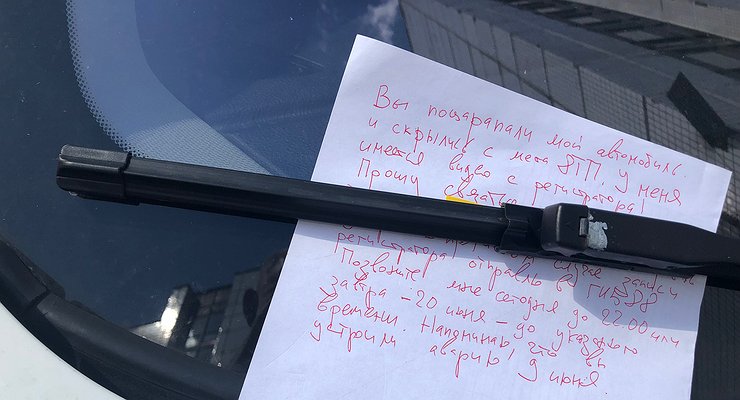 Вы поцарапали мой автомобиль
и скрылись с места ДТП. У меня
имеется видео с регистратора!
Прошу связаться
случае записи
регистратора отправлю в ГИБДД
Позвоните мне сегодня до 22.00 или
завтра - 20 июня - до указаного
времени. Напоминаю, что вы
устроили аварию 9 июня